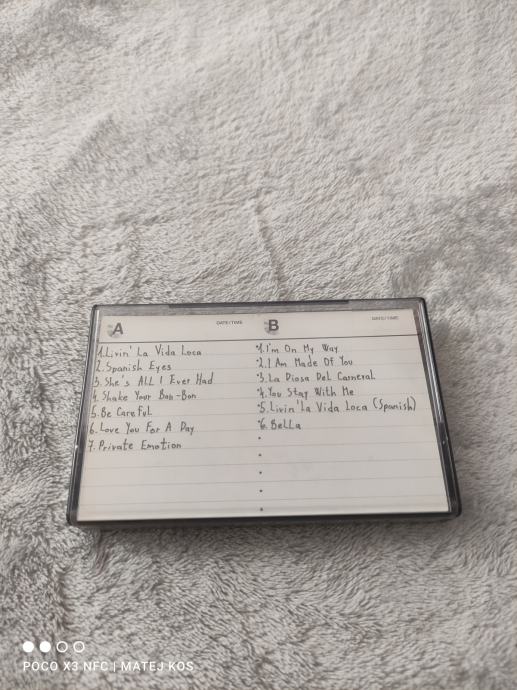 A DATE/TIME
1. Livin' La Vida Loca
2. Spanish Eyes
3. She's ALL I Ever Had
4. Shake Your Bon-Bon
5. Be Careful
6. Love You For A Day
7. Private Emotion
B DATE/TIME
1. I'm On My Way
2. I Am Made Of You
3. La Diosa Del Carneval
4. You Stay With Me
5. Livin' La Vida Loca (Spanish)
6. Bella
POCO X3 NFC | MATEJ KOS